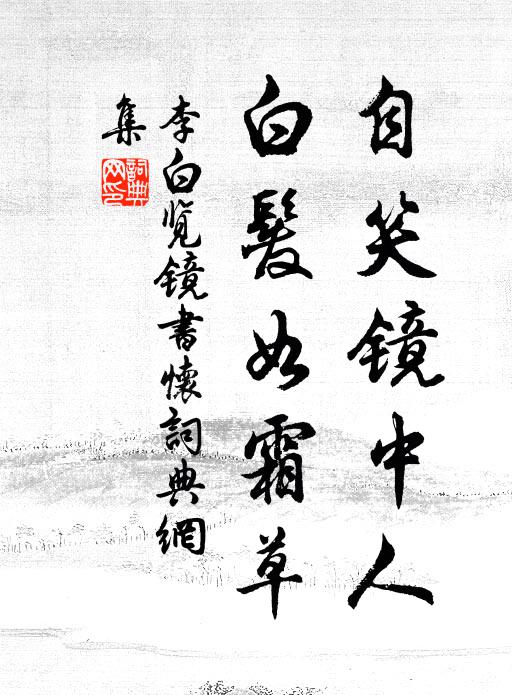 自笑镜中人
白髮如霜草
李白覽镜書懷詞典網
集
詞典网印